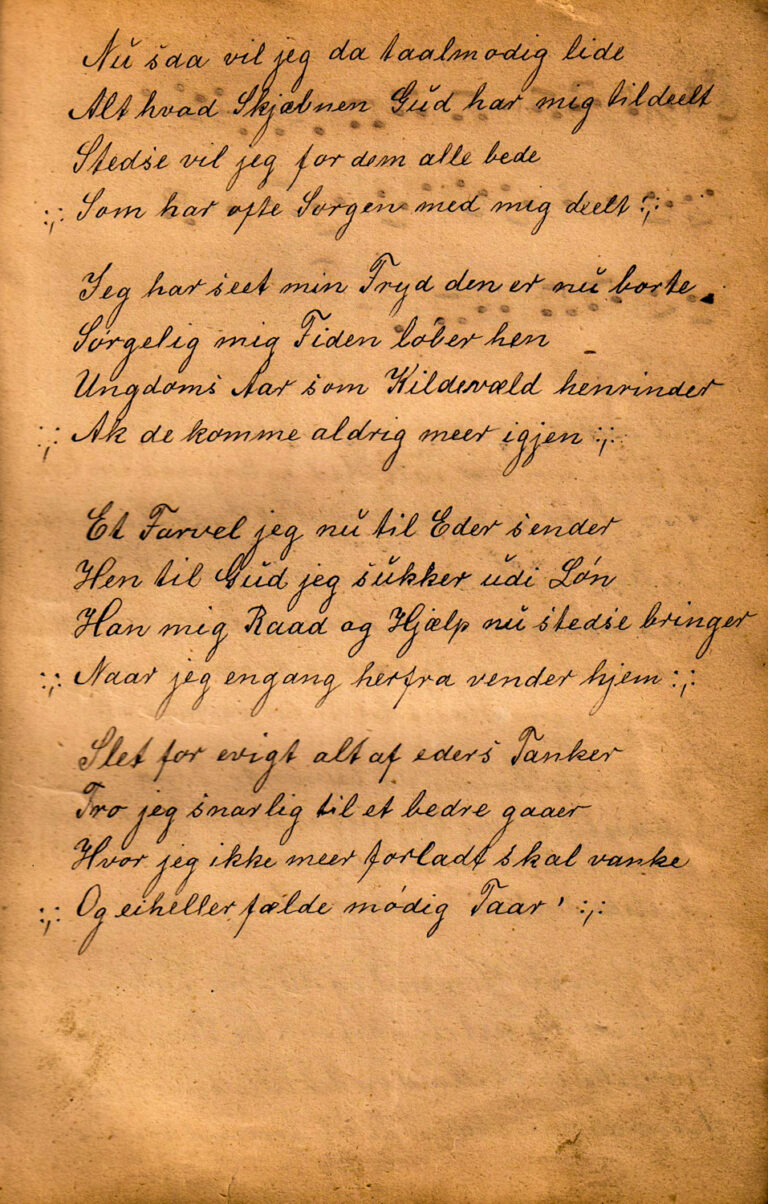 Nu saa vil jeg da taalmodig lide
Alt hvad Skjæbnen Gud har mig tildeelt
Stedse vil jeg for dem alle bede
:,: Som har ofte Sorgen med mig deelt :,:
Jeg har seet min Fryd den er nu borte.
Sørgelig mig Tiden løber hen
Ungdoms Aar som Kildevæld henrinder
:,: Ak de komme aldrig meer igjen :,:
Et Farvel jeg nu til Eder sender
Hen til Gud jeg sukker udi Løn
Han mig Raad og Hjælp nu stedse bringer
:,: Naar jeg engang herfra vender hjem :,:
Slet for evigt alt af eders Tanker
Tro jeg snarlig til et bedre gaaer
Hvor jeg ikke meer forladt skal vanke
:,: Og eiheller fælde módig Taar' :,: